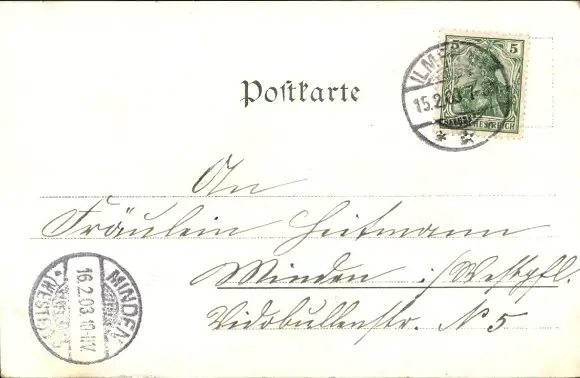 5 5
ILM
15.2.03.7-8
DEUTSCHES REICH
Postkarte
An
Fräulein Heitmann
Minden i/Westpfl.
Vidobullenstr. N 5
MINDEN
16.2.03.10-11V.
* (WESTF.)